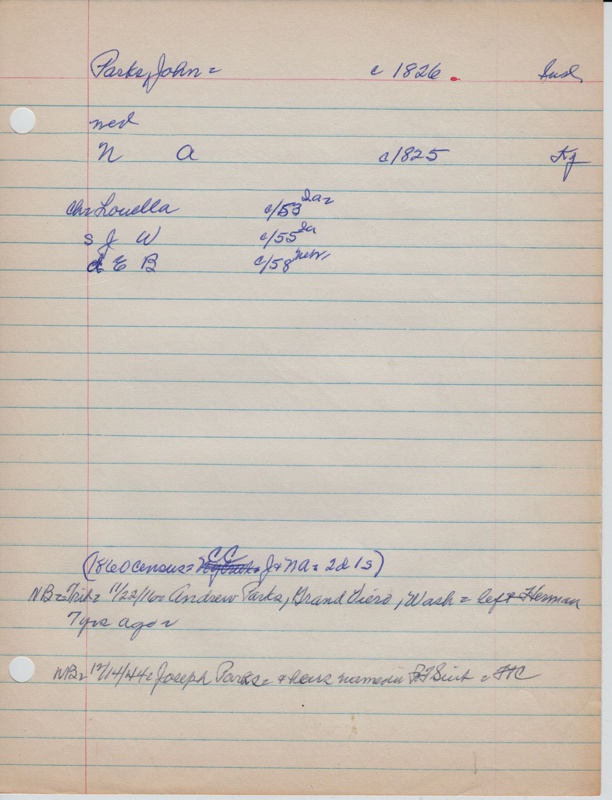 Parks, John = c 1826. Ind,
med
N A c/825 Ky
Ch= Louella c/53 Ia=
s J W c/55 Ia
d E B c/58 Nebr,
(1860 census = CC J + NA = 2d 1s)
NB = Trib = 11/22/16 = Andrew Parks, Grand View, Wash = left Herman
7 yrs ago =
NB= 12/14/44 = Joseph Parks = + names in = FTC